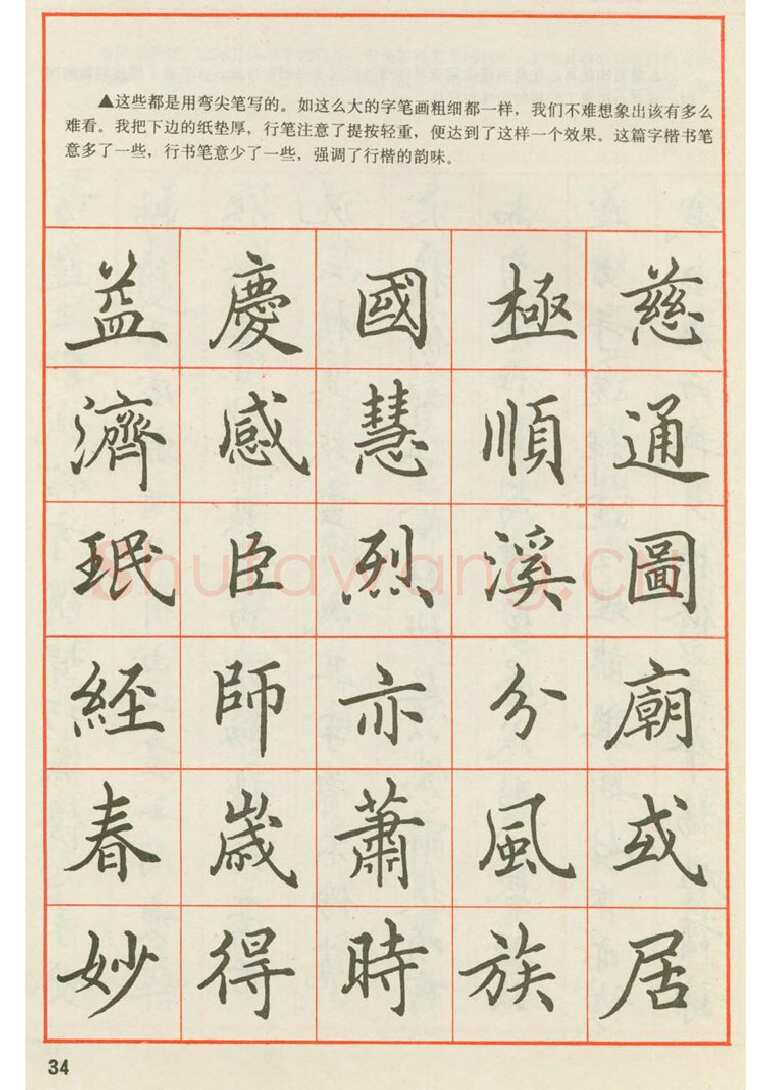 ▲这些都是用弯尖笔写的。如这么大的字笔画粗细都一样，我们不难想象出该有多么
难看。我把下边的纸垫厚，行笔注意了提按轻重，便达到了这样一个效果。这篇字楷书笔
意多了一些，行书笔意少了一些，强调了行楷的韵味。
益 慶 國 極 慈
濟 感 慧 順 通
珉 臣 烈 溪 圖
經 師 亦 分 廟
春 歲 蕭 風 或
妙 得 時 族 居
34